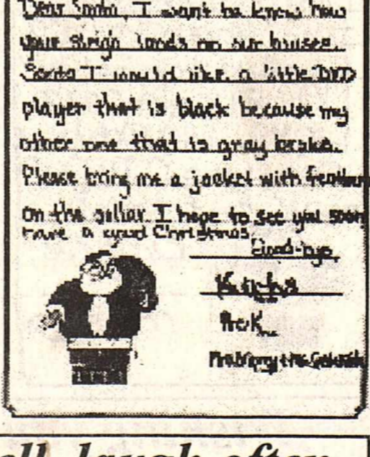 Dear Santa, I want to know how
your sleigh lands on our houses.
Santa I would like a little DVD
player that is black because my
other one that is gray broke.
Please bring me a jacket with feathers
on the collar. I hope to see you soon
have a good Christmas.
Good-bye,
Pre K
all laugh after